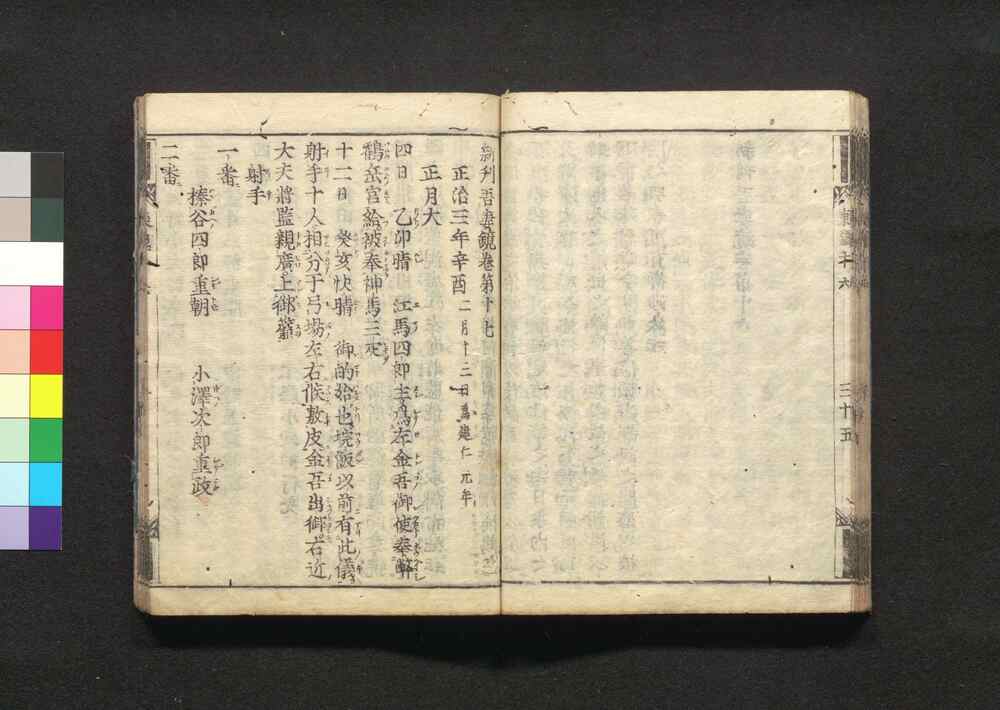 東鑑十六
三十五
新刊吾妻鏡卷第十七
正治三年辛酉 二月十三日爲建仁元年
正月大
四日 乙卯晴 江馬四郎主爲左金吾御使奉幣
鶴岳宮給被奉神馬三疋
十二日 癸亥快晴 御的始也垸飯以前有此儀
射手十人相分于弓場左右候敷皮金吾出御右近
大夫將監親廣上御簾
射手
一番
榛谷四郎重朝 小澤次郎重政
二番